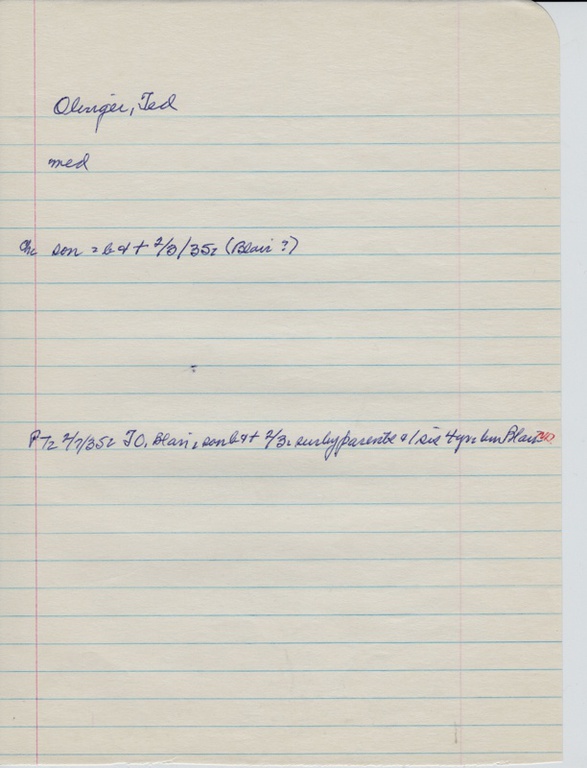 Olinger, Ted
med
Ch: son = b & + 2/3/35: (Blair?)
P 7: 2/7/35: TO, Blair, son b & + 2/3: sur by parents & 1 sis 4 yrs: bur Blair